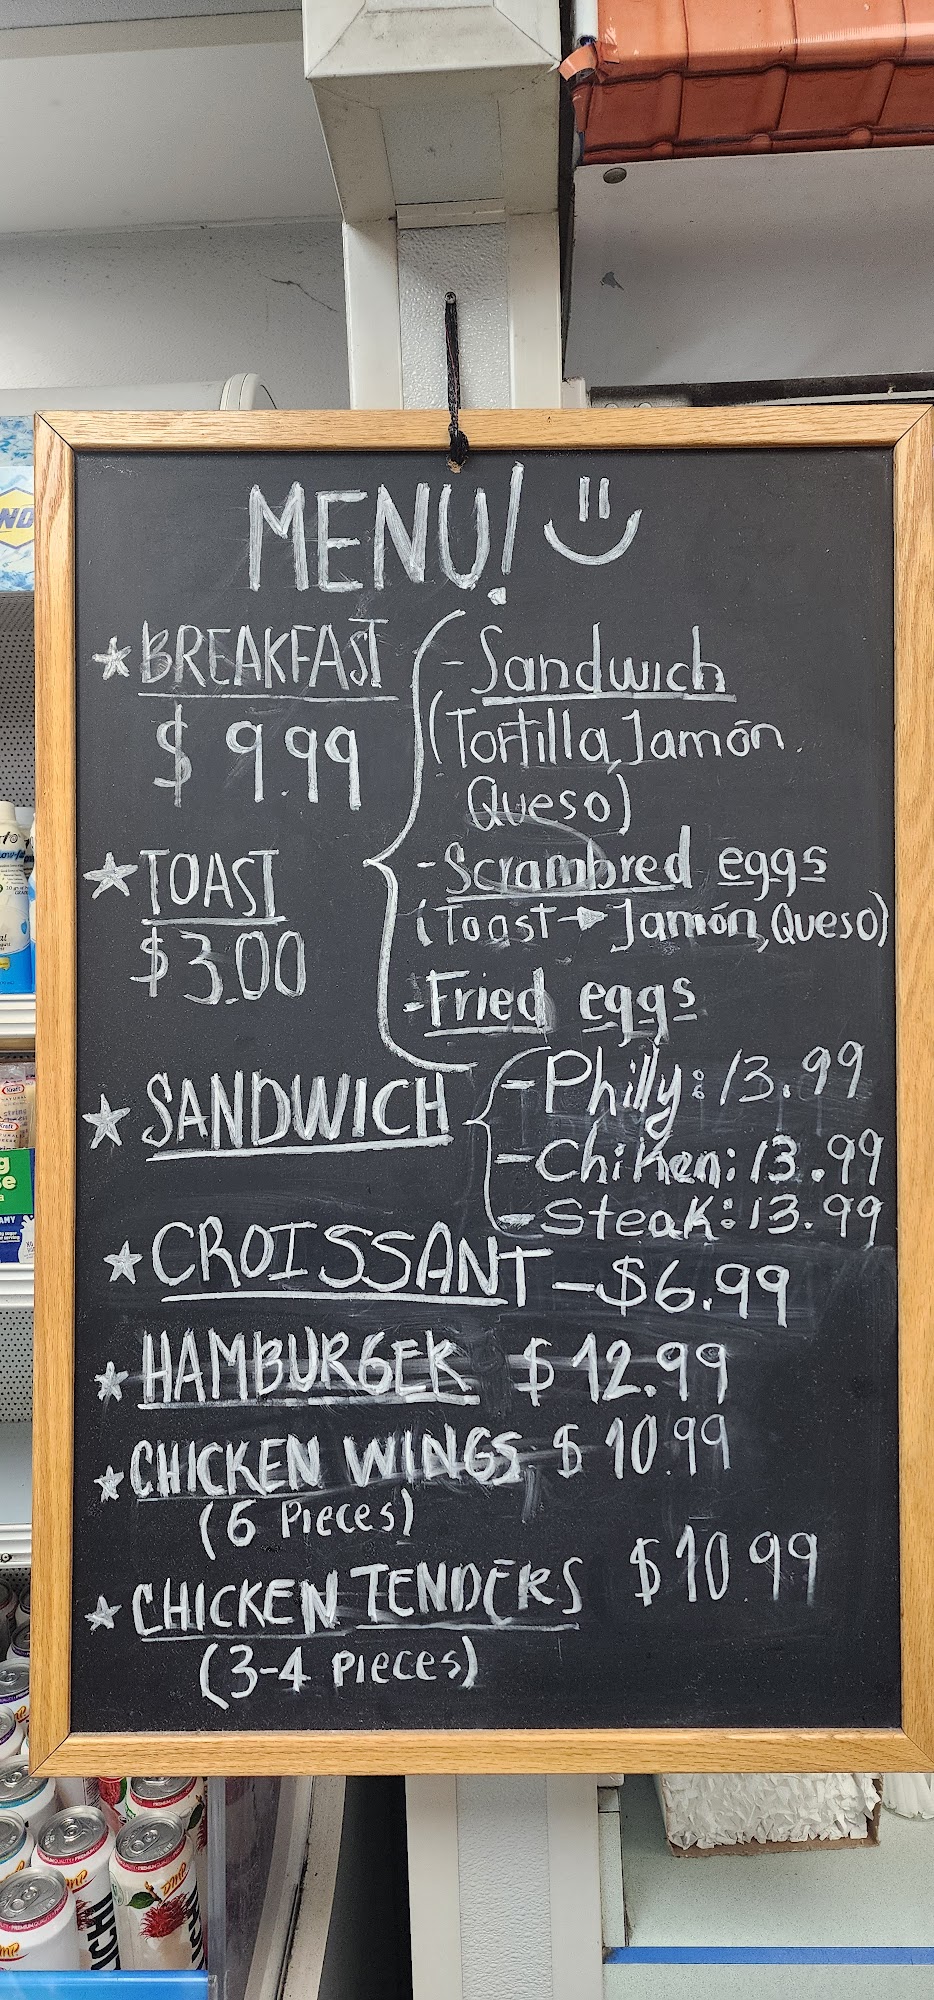 MENU!
★ BREAKFAST
$ 9.99
- Sandwich
(Tortilla, Jamón
Queso)
- Scrambred eggs
(Toast → Jamón, Queso)
- Fried eggs
★ TOAST
$3.00
★ SANDWICH
- Philly: 13.99
- Chiken: 13.99
- Steak: 13.99
★ CROISSANT - $6.99
★ HAMBURGER $ 12.99
★ CHICKEN WINGS $ 10.99
(6 Pieces)
★ CHICKEN TENDERS $10.99
(3-4 Pieces)
Kraft